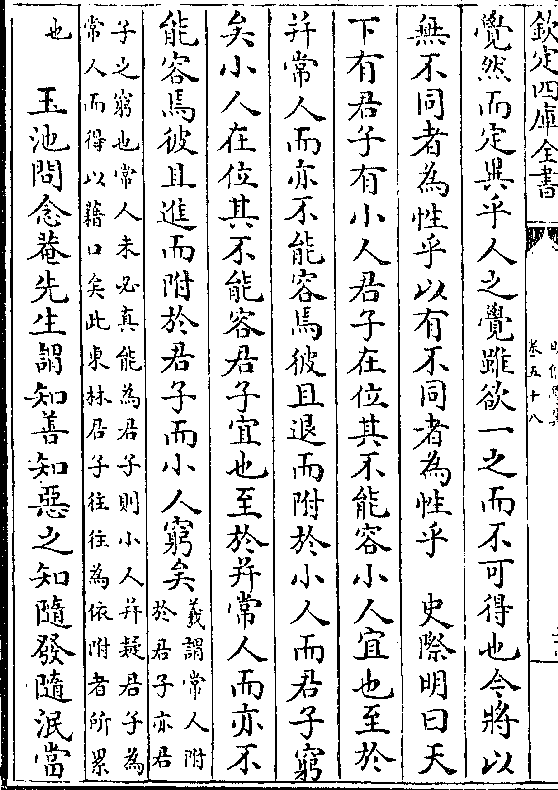 欽定四庫全書
卷五十八
覺然而定異乎人之覺雖欲一之而不可得也今將以
無不同者為性乎以有不同者為性乎　史際明曰天
下有君子有小人君子在位其不能容小人宜也至於
并常人而亦不能容焉彼且退而附於小人而君子窮
矣小人在位其不能容君子宜也至於并常人而亦不
能容焉彼且進而附於君子而小人窮矣
義謂常人附
於君子亦君
子之窮也常人未必真能為君子則小人并疑君子為
常人而得以藉口矣此東林君子往往為依附者所累
也
玉池問念菴先生謂知善知惡之知隨發隨泯當